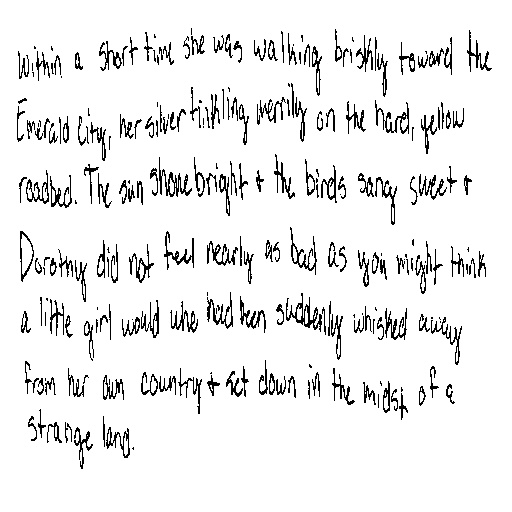 within a short time she was walking briskly toward the
Emerald City, her silver tinkling merrily on the hard, yellow
roadbed. The sun shone bright & the birds sang sweet &
Dorothy did not feel nearly as bad as you might think
a little girl would who had been suddenly whisked away
from her own country & set down in the midst of a
strange land.